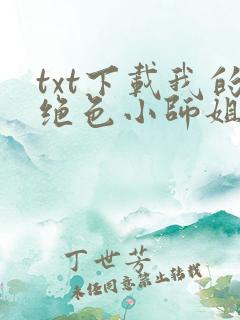 txt下载我的
绝色小师姐
丁世芳
未经同意禁止转载